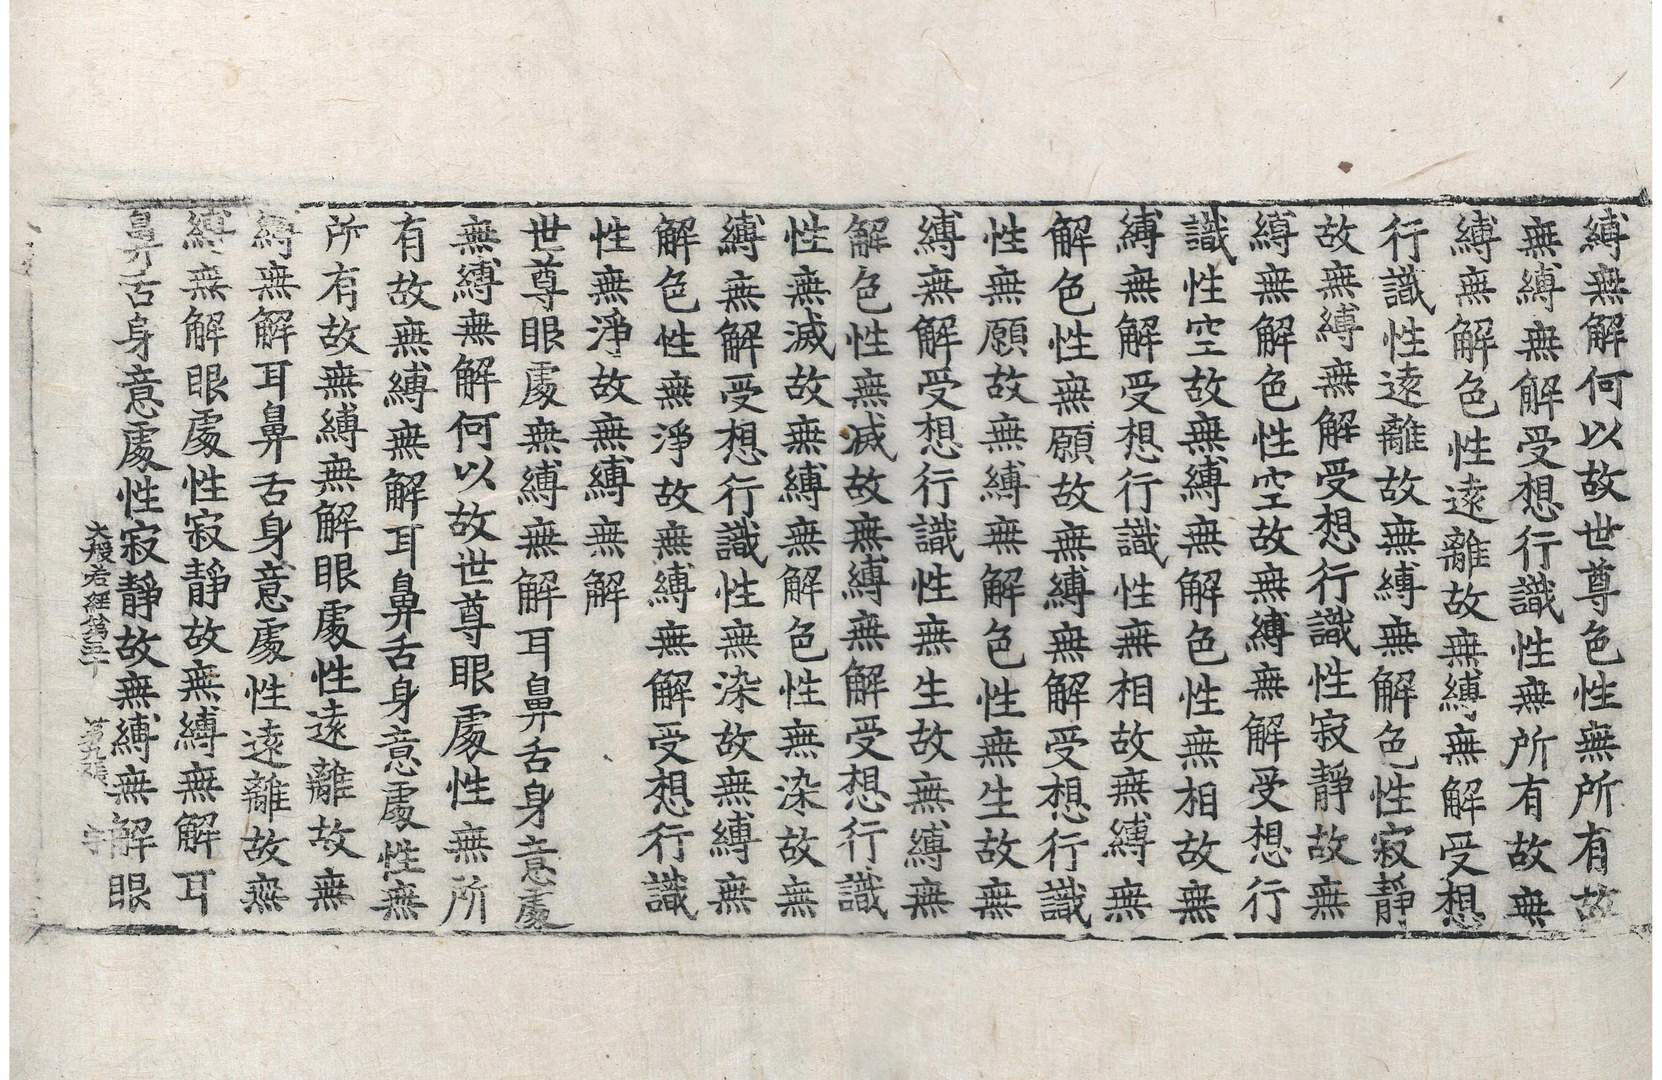 縛無解何以故世尊色性無所有故
無縛無解受想行識性無所有故無
縛無解色性遠離故無縛無解受想
行識性遠離故無縛無解色性寂靜
故無縛無解受想行識性寂靜故無
縛無解色性空故無縛無解受想行
識性空故無縛無解色性無相故無
縛無解受想行識性無相故無縛無
解色性無願故無縛無解受想行識
性無願故無縛無解色性無生故無
縛無解受想行識性無生故無縛無
解色性無滅故無縛無解受想行識
性無滅故無縛無解色性無染故無
縛無解受想行識性無染故無縛無
解色性無淨故無縛無解受想行識
性無淨故無縛無解
世尊眼處無縛無解耳鼻舌身意處
無縛無解何以故世尊眼處性無所
有故無縛無解耳鼻舌身意處性無
所有故無縛無解眼處性遠離故無
縛無解耳鼻舌身意處性遠離故無
縛無解眼處性寂靜故無縛無解耳
鼻舌身意處性寂靜故無縛無解眼
大般若經第五十 第九張